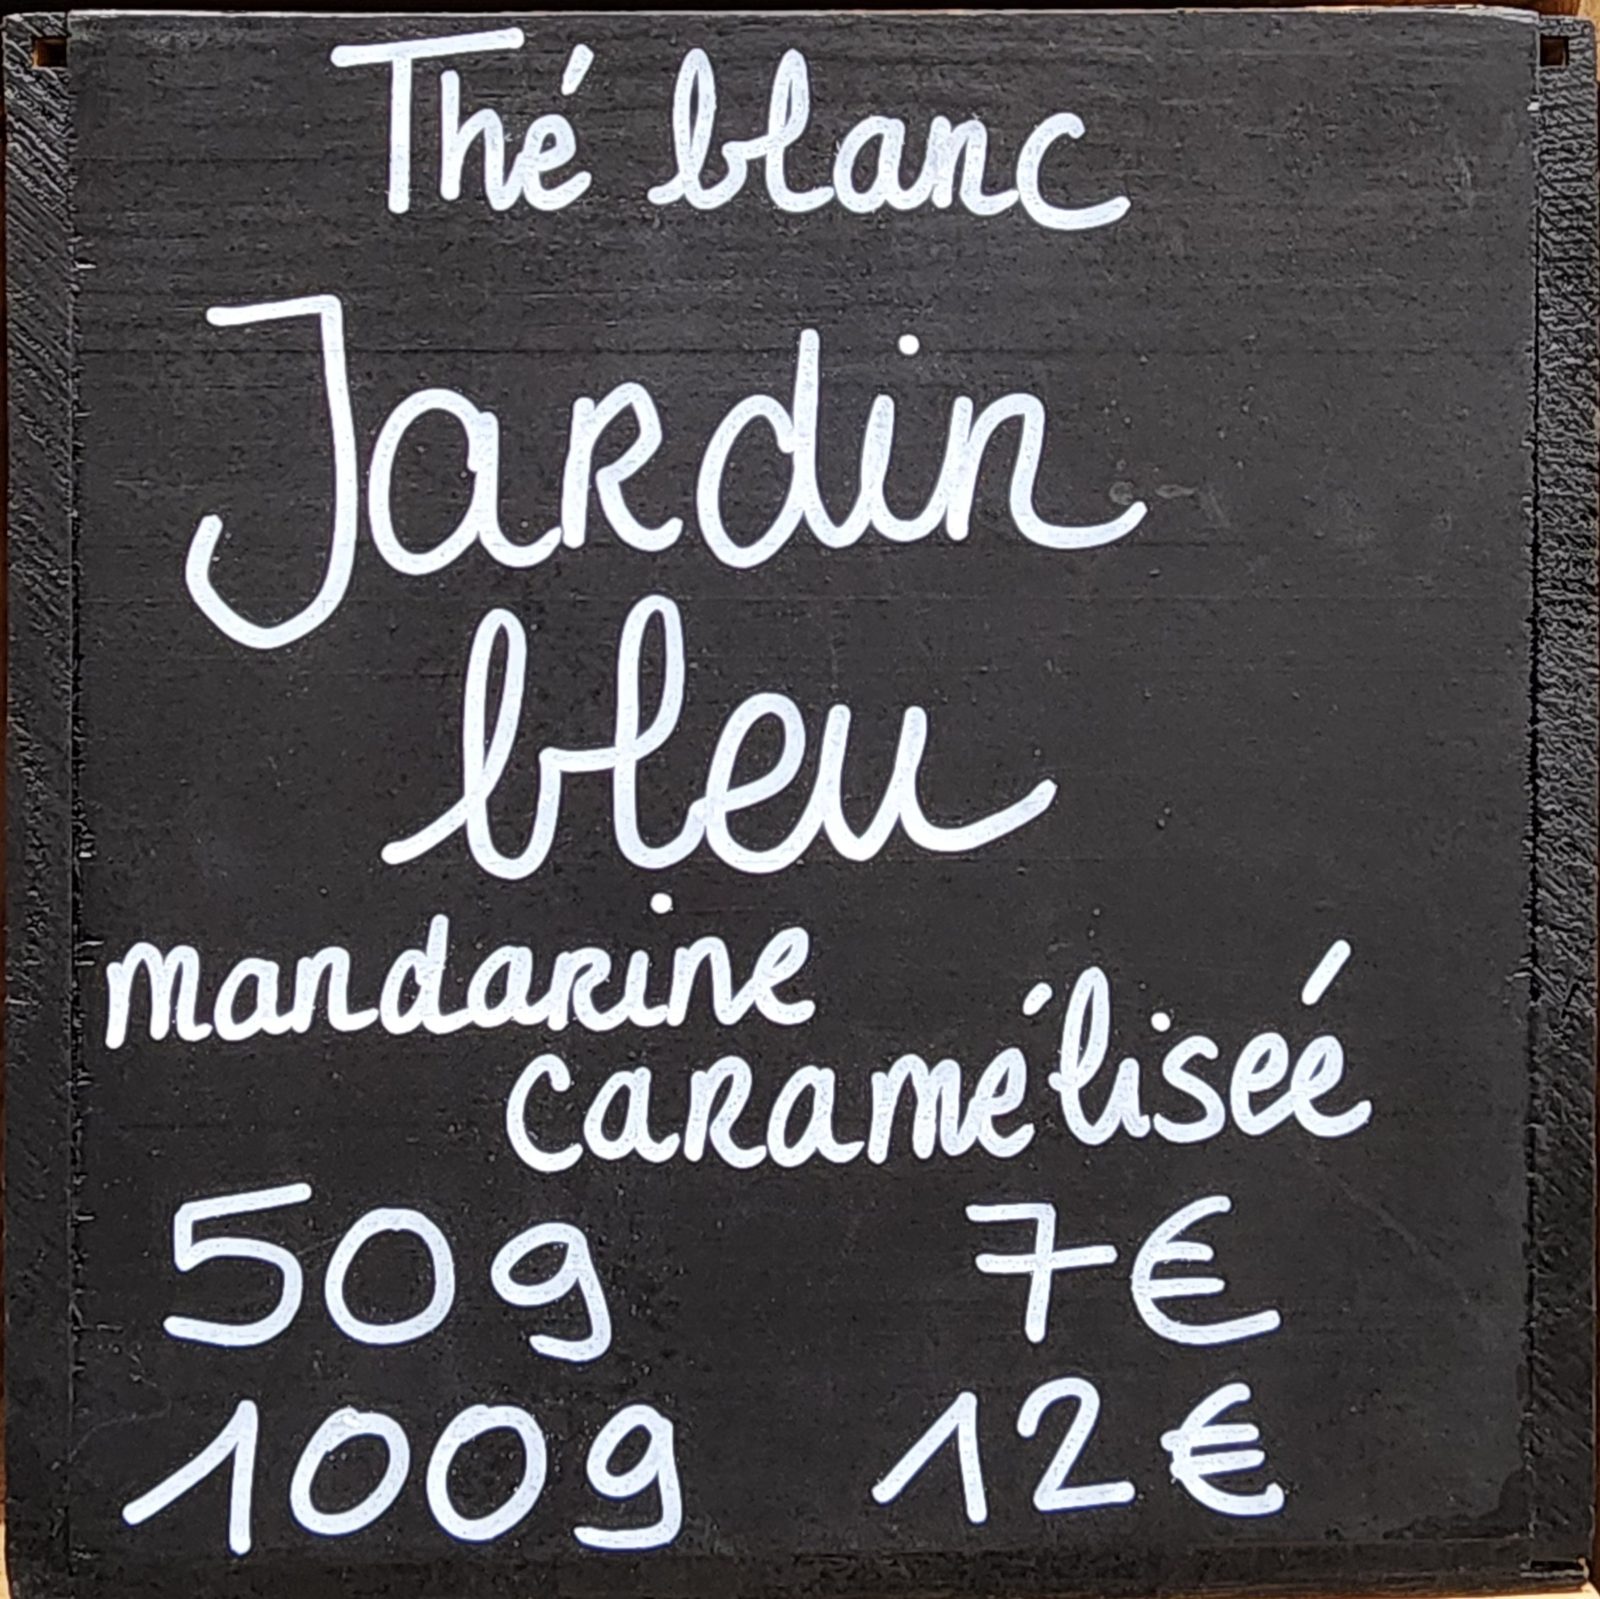 Thé blanc
Jardin
bleu
mandarine
caramélisée
50g 7€
100g 12€